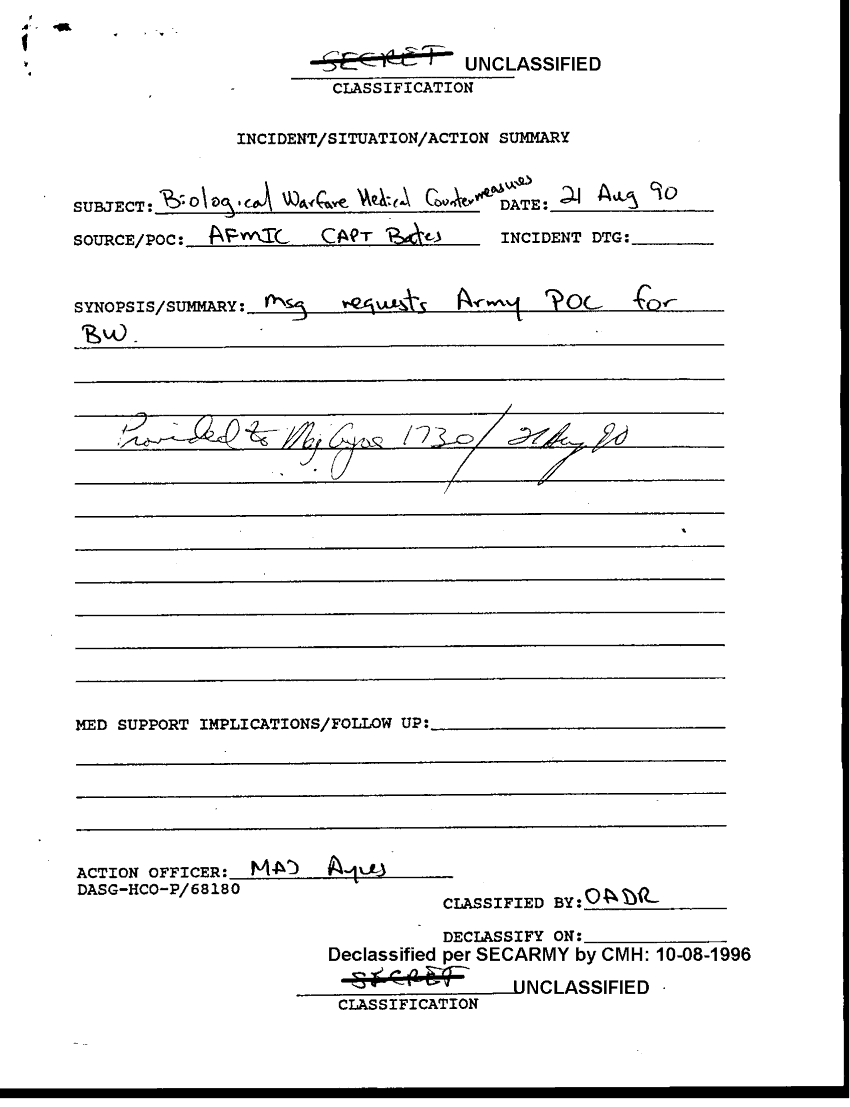 SECRET UNCLASSIFIED
CLASSIFICATION
INCIDENT/SITUATION/ACTION SUMMARY
SUBJECT: Biological Warfare Medical Countermeasures DATE: 21 Aug 90
SOURCE/POC: AFMIC CAPT Bates INCIDENT DTG:
SYNOPSIS/SUMMARY: msg requests Army POC for
BW.
Provided to Maj 1730/21 Aug 90
MED SUPPORT IMPLICATIONS/FOLLOW UP:
ACTION OFFICER: MAJ Ayres
DASG-HCO-P/68180
CLASSIFIED BY: OADR
DECLASSIFY ON:
Declassified per SECARMY by CMH: 10-08-1996
SECRET UNCLASSIFIED
CLASSIFICATION